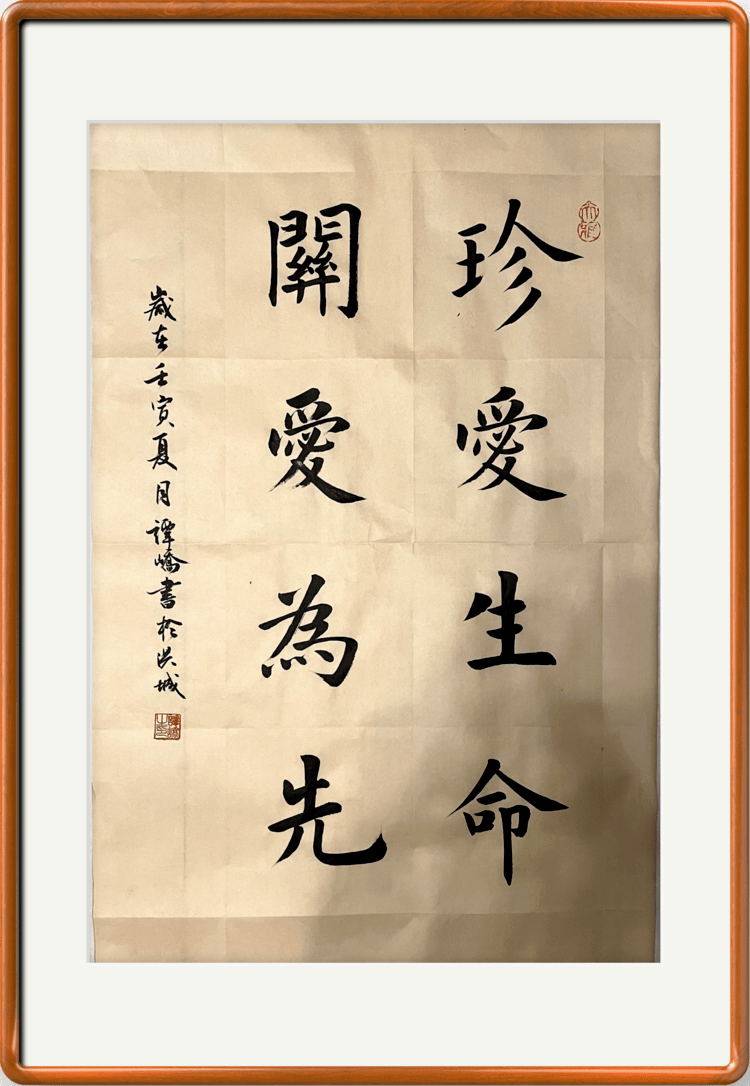 珍愛生命
關愛為先
歲在壬寅夏月譚嶠書於洪城